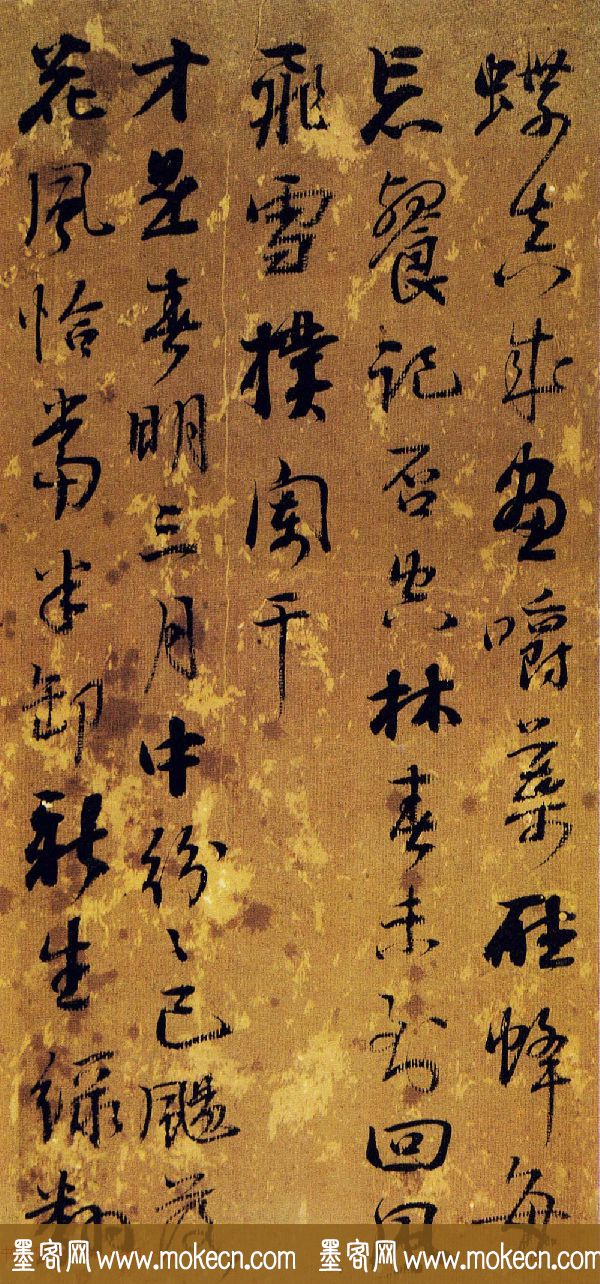 蝶真成画嚼蕊酣蜂每
忘餐记否空林春未到回
飛雪撲闌干
才是春明三月中紛〻已颺落
花風恰當半卸新生綠
墨客网 www.mokecn.com 墨客网 www.mokecn.com